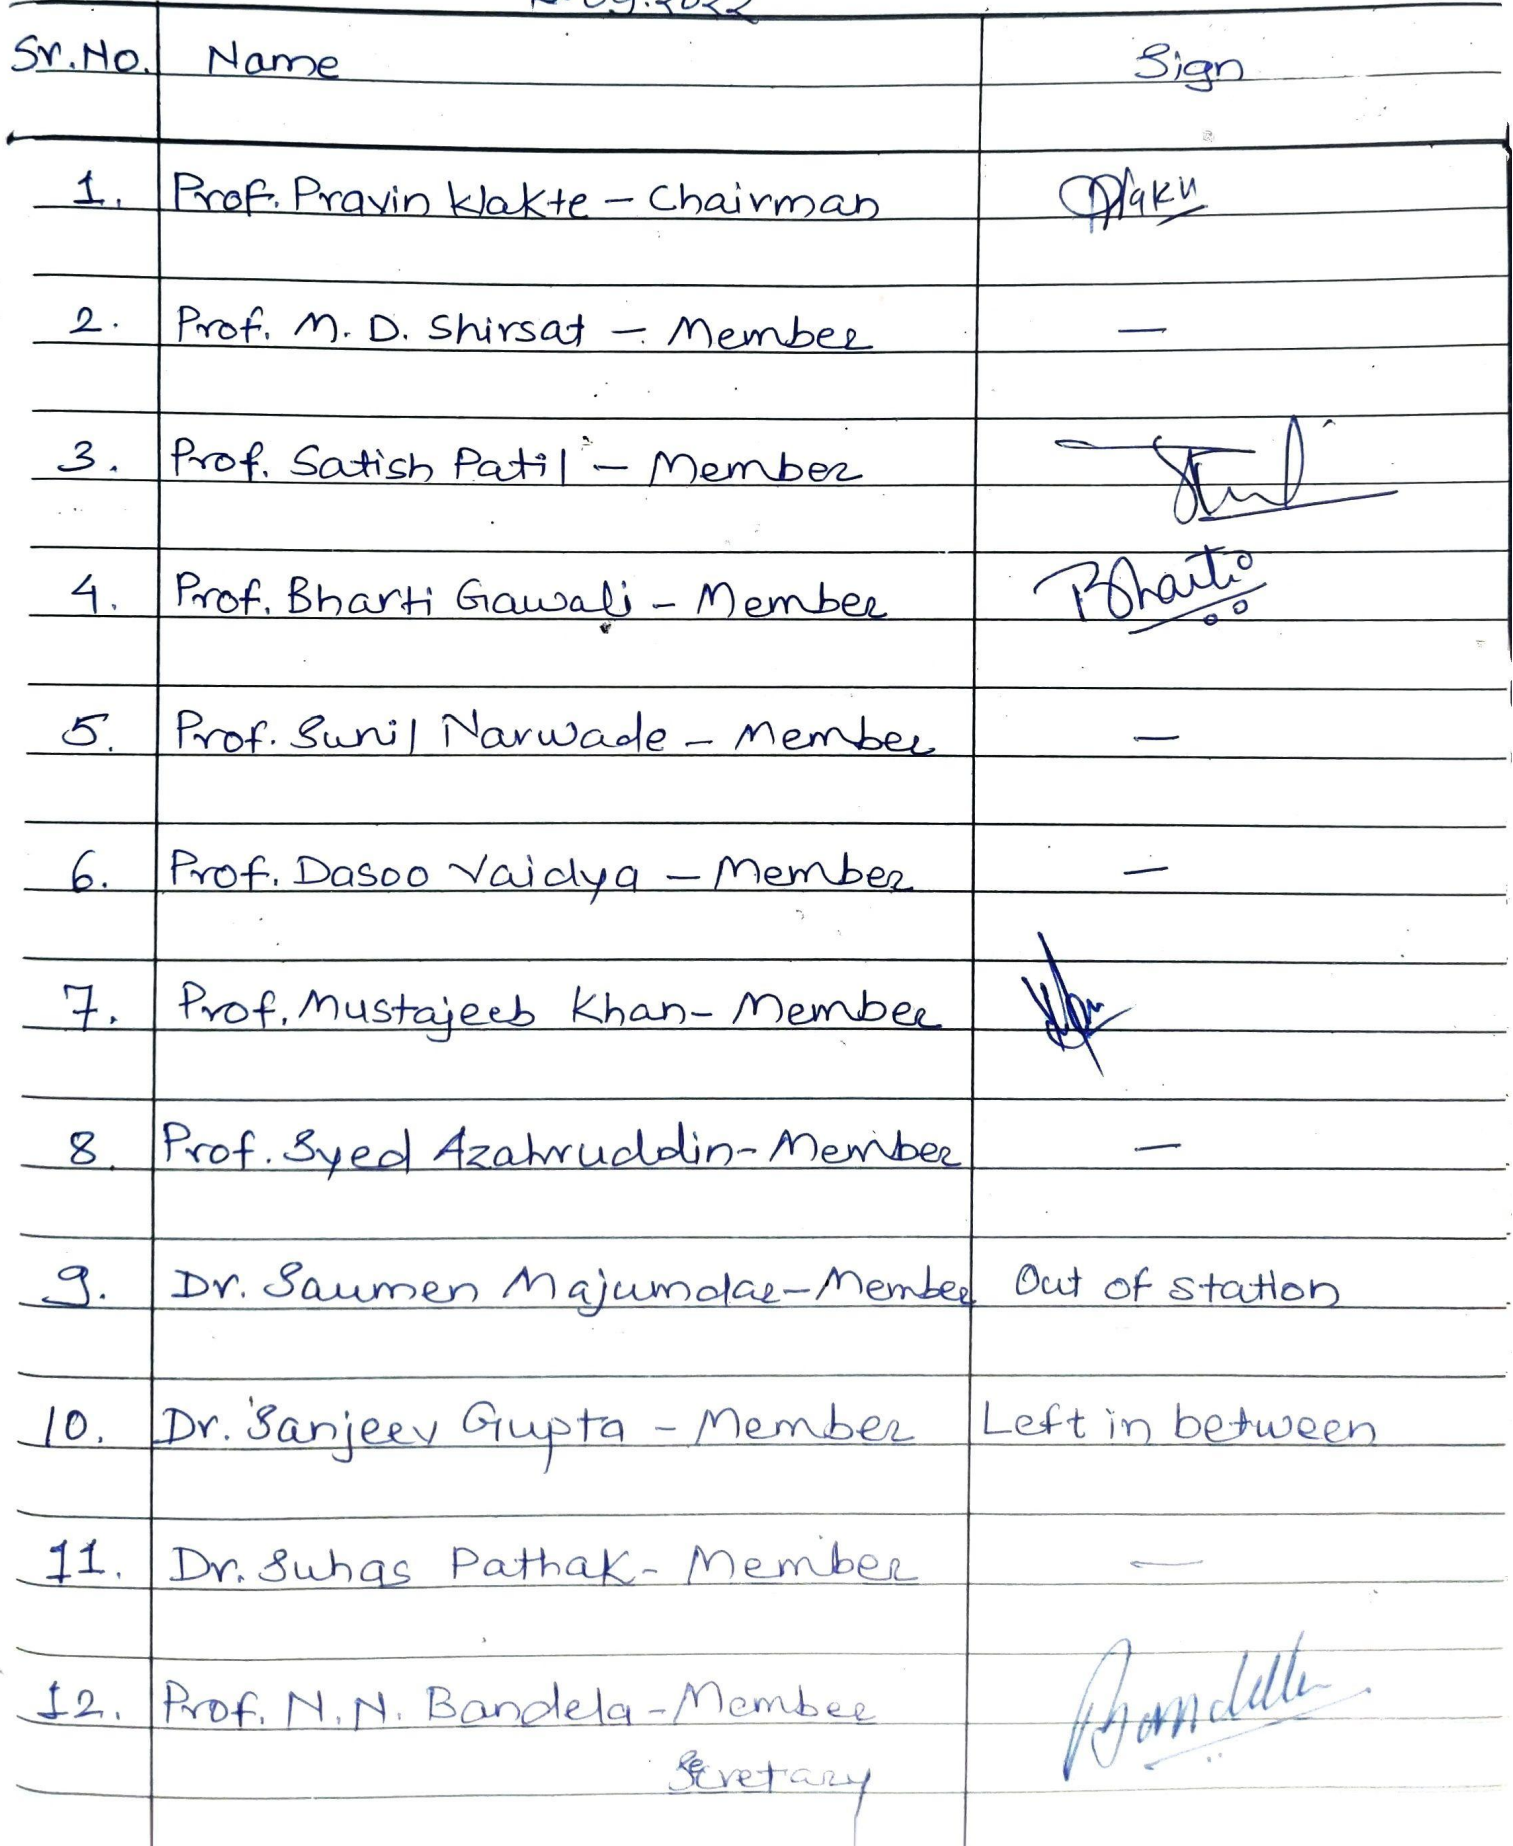 Sr.No. Name Sign
1. Prof. Pravin Wakte - Chairman
2. Prof. M. D. Shirsat - Member —
3. Prof. Satish Patil - Member
4. Prof. Bharti Gawali - Member Bharti
5. Prof. Sunil Narwade - Member —
6. Prof. Dasoo Vaidya - Member —
7. Prof. Mustajeeb Khan - Member
8. Prof. Syed Azahruddin - Member —
9. Dr. Saumen Majumdar - Member Out of station
10. Dr. Sanjeev Gupta - Member Left in between
11. Dr. Suhas Pathak - Member —
12. Prof. N.N. Bandela - Member
Secretary